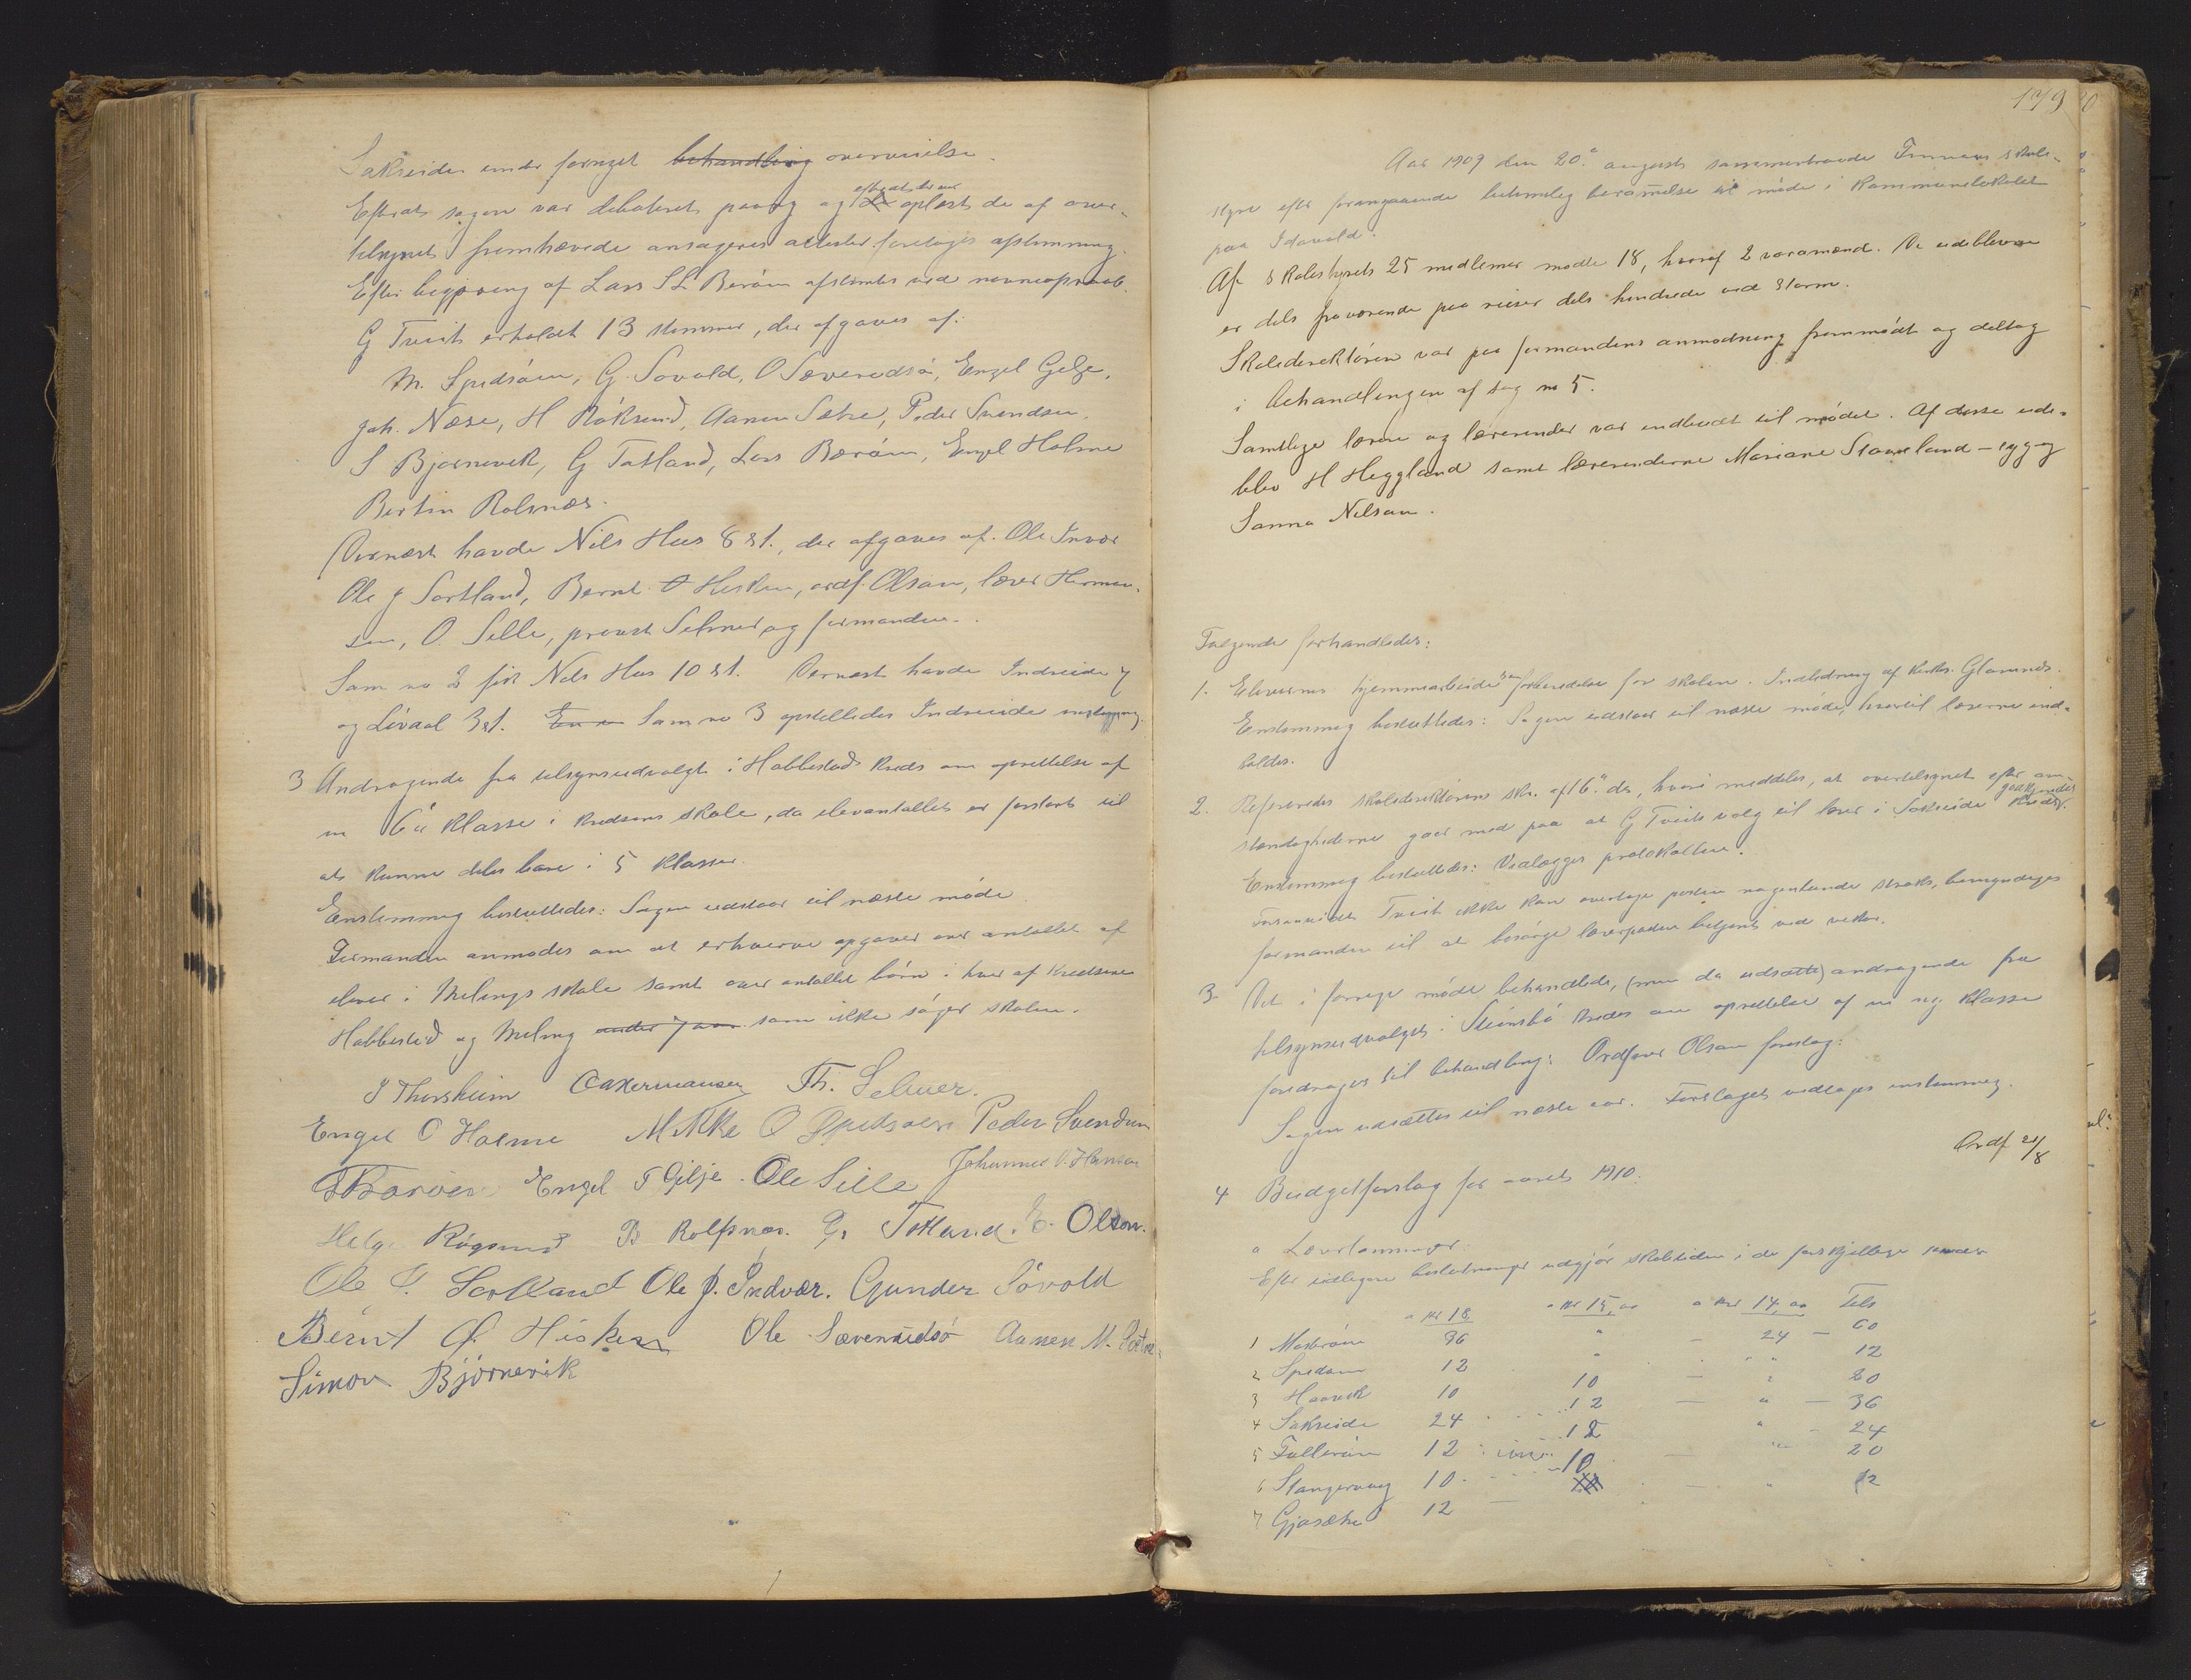 Sakseide under fornyet behandling overveielse.
Efterat sagen var debateret paany og efterat der var oplæst de af over-
tilsynet fremhævede ansøgeres attester foretoges afstemning.
Efter begjæring af Lars S L Børøen afstemtes ved navneopraab.
G Tveit erholdt 13 stemmer, der afgaves af:
M. Spidsøen, G. Søvold, O Sæverudsø, Engel Gilje,
Joh. Næse, H Røksund, Aamen Sætre, Peder Svendsen,
S Bjørnevik, G Totland, Lars Børøen, Engel Holme
Bertin Rolsnæs.
Dernæst havde Nils Hus 8 st., der afgaves af. Ole Indvær
Ole J Sortland, Bernt O Hisken, ordf. Olson, lærer Herman-
sen, O. Selle, provst Selmer og formanden.
Som no 2 fik Nils Hus 10 st. Dernæst havde Indreeide 7
og Løvaal 3 st. Som no 3 opstilledes Indreeide enstemmig.
3 Andragende fra tilsynsudvalget i Hobbestad kreds om oprettelse af
en 6te klasse i kredsens skole, da elevantallet er forstort til
at kunne deles bare i 5 klasser.
Enstemmig besluttedes: Sagen udstaar til næste møde
Formanden anmodes om at erhverve opgaver over antallet af
elever i Melings skole samt over antallet børn i hver af kredsene
Hobbestad og Meling under 7 aar som ikke søger skolen.
J Thorsheim C Akermansen Th. Selmer.
Engel O Holme Mikkel O Spidsøen Peder Svendsen
Engel T Gilje. Ole Sille Johannes O. Hansen
Helge Røgsund B Rolfsnæs. G. Totland. E. Olson.
Ole J. Sortland Ole J. Indvær. Gunder Søvold
Bernt O. Hisken Ole Sæverudsø Aamen M. Sætre.
Simon Bjørnevik
179
Aar 1909 den 20de august sammentraadte Finnaas skole-
styre efter forangaaende lovmelig berammelse til møde i kommunelokalet
paa Idavold.
Af skolestyrets 25 medlemer mødte 18, hvoraf 2 varamænd. De udeblevne
er dels fraværende paa reiser dels hindrede ved storm.
Skoledirektøren var paa formandens anmodning fremmødt og deltog
i behandlingen af sag no 5.
Samtlige lærere og lærerinder var indbudt til mødet. Af disse ude-
blev H Heggland samt lærerinderne Mariane Staveland – syg og
Sanna Nilsen.
Følgende forhandledes:
1. Elevernes hjemmearbeide som forberedelse for skolen. Indledning af kirks. Glomnes.
Enstemmig besluttedes: Sagen udstaar til næste møde, hvortil lærerne ind-
kaldes.
2. Refereredes skoledirektørens skr. af 16de ds, hvori meddeles, at overtilsynet efter om-
stændighederne gaar med paa at G Tveits valg til lærer i Sakseide kreds godkjendes.
Enstemmig besluttedes: Vedlægges protokollen.
Forsaavidt Tveit ikke kan overtage posten nogenlunde straks, bemyndiges
formanden til at besørge lærerposten betjent ved vikar.
3. Det i forrige møde behandlede, (men da udsatte) andragende fra
tilsynsudvalget i Steinsbø kreds om oprettelse af en ny klasse
foredroges til behandling. Ordfører Olson foreslog:
Sagen udsættes til næste aar. Forslaget vedtoges enstemmig.
Ordf 21/8
4 Budgetforslag for aaret 1910.
a Lærerlønninger.
Efter tidligere beslutninger udgjør skoletiden i de forskjellige kredser
a kr 18 a kr 15,00 a kr 14,00 Tils
1 Mosterøen 36 " – 24 – 60
2 Spidsøen 12 " " 12
3 Haavik 10 10 – " 20
4 Sakseide 24 12 – " – 36
5 Følleøen 12 12 " – 24
6 Stangervaag 10 10 – " 20
7 Gjøsæter 12 – – " 12